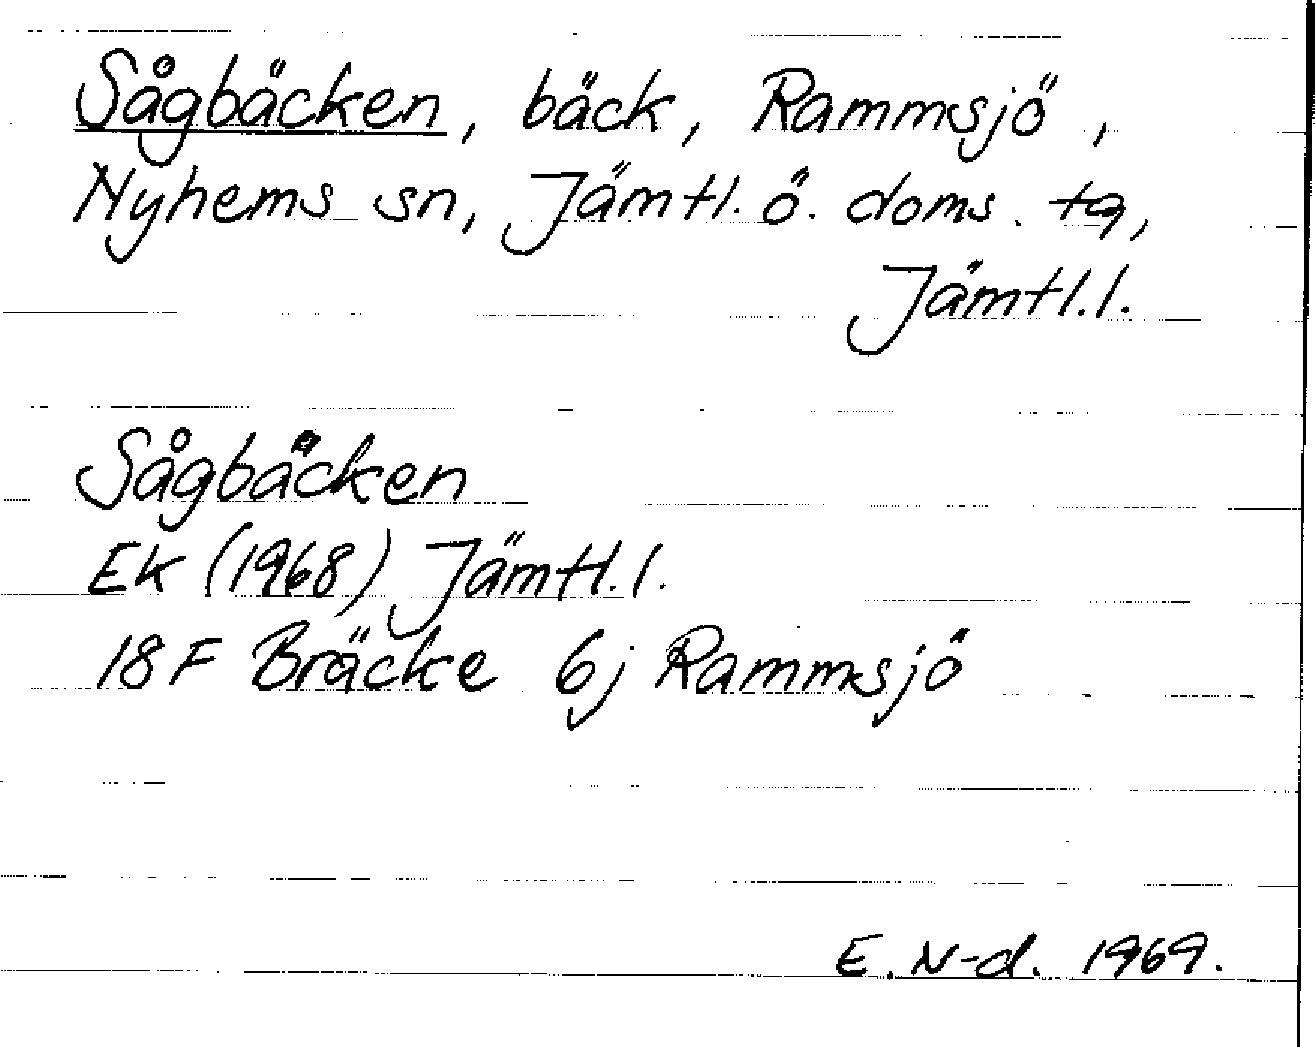 Sågbäcken, bäck, Rammsjö,
Nyhems sn, Jämtl. ö. doms. tg,
Jämtl. l.
Sågbäcken
EK (1968) Jämtl. l.
18 F Bräcke 6j Rammsjö
E. N-d. 1969.